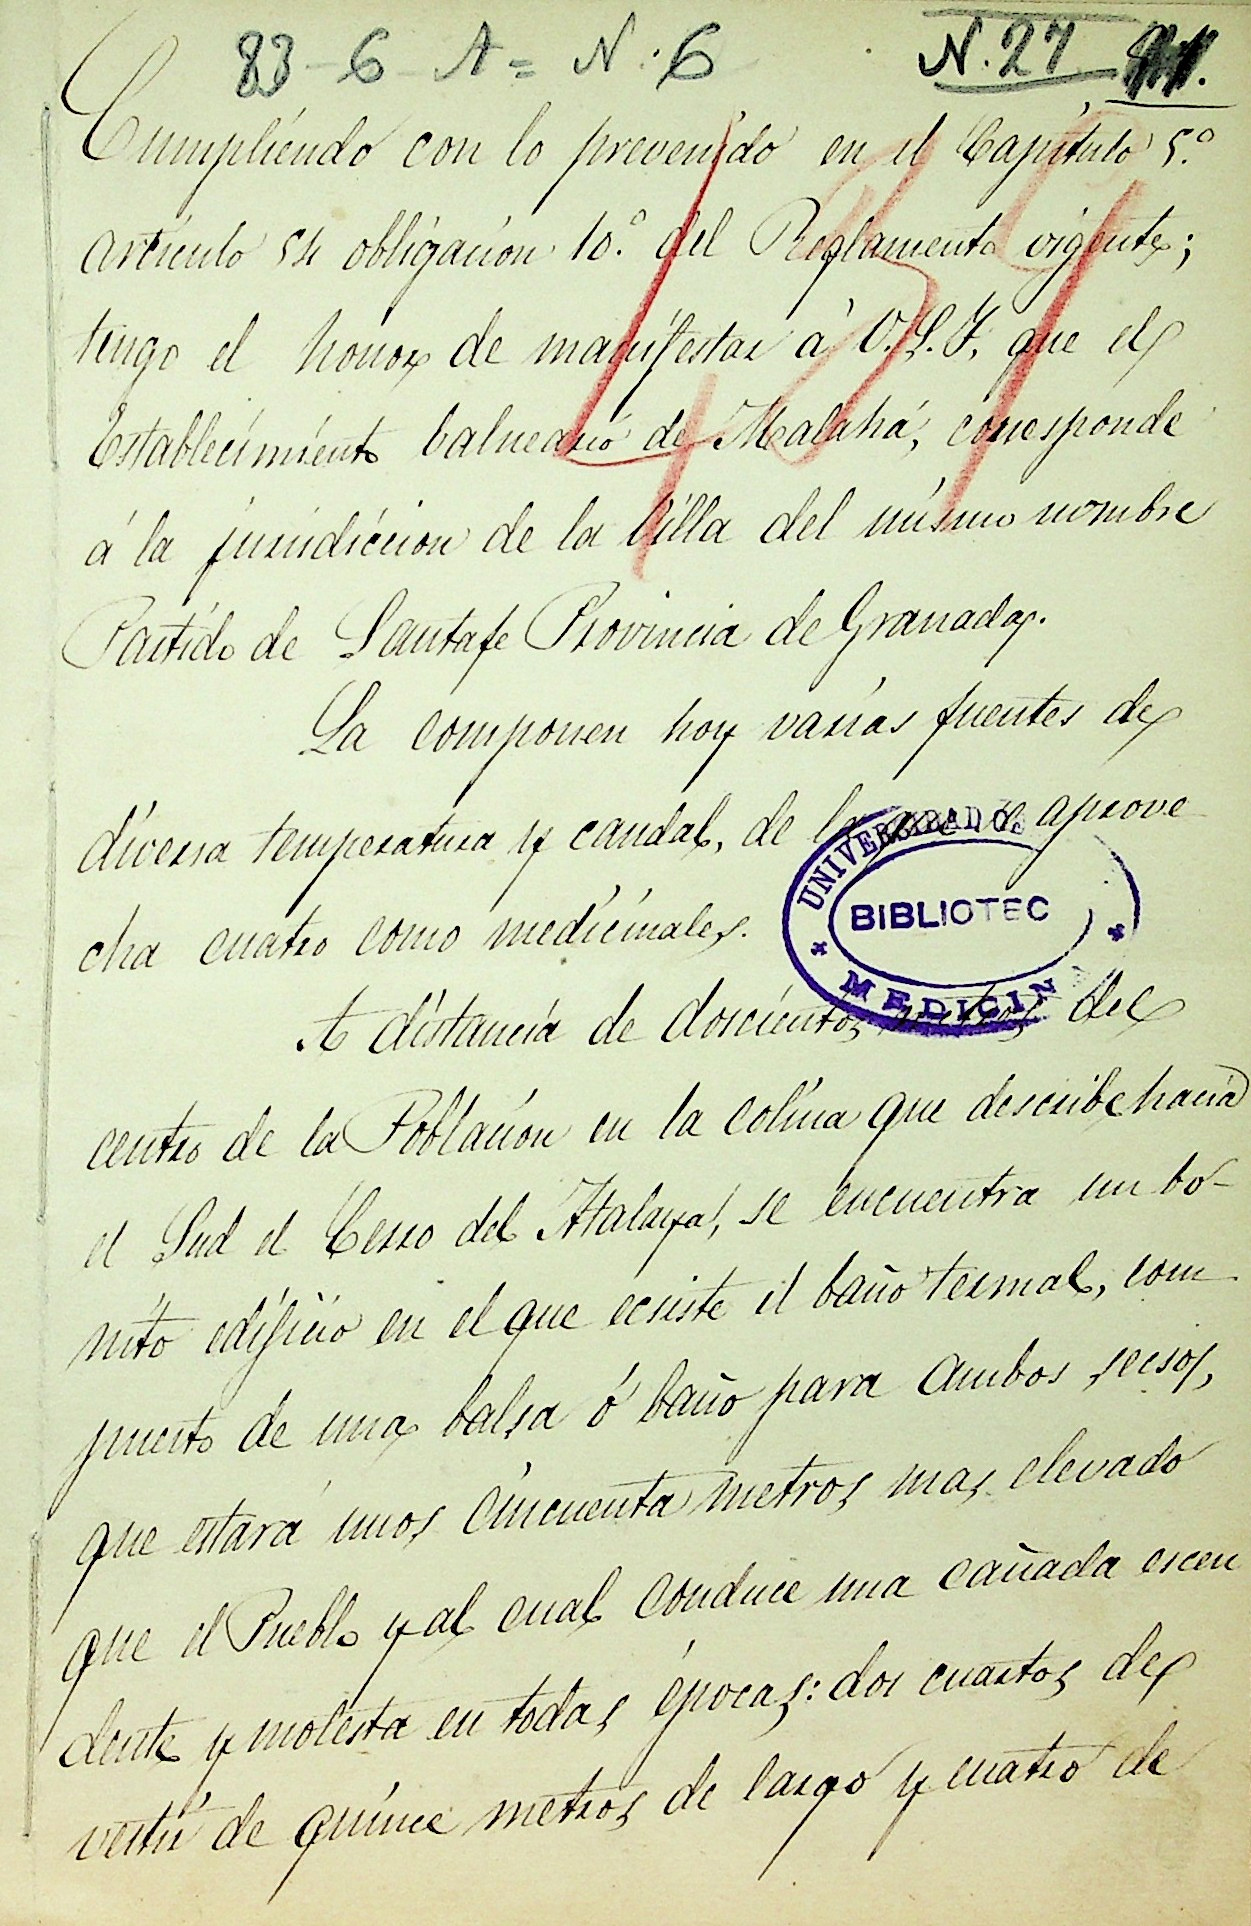 83-6-A= N.6
N.27
Cumpliendo con lo prevenido en el Capítulo 5.º
articulo 54 obligacion 10.º del Reglamento vigente;
tengo el honor de manifestar á V.S.I. que el
Establecimiento balneario de Malahá, corresponde
á la jurisdiccion de la Villa del mismo nombre
Partido de Santafe Provincia de Granada.
La componen hoy varias fuentes de
diversa temperatura y caudal, de las que se aprove
cha cuatro como medicinales.
UNIVERSIDAD DE
BIBLIOTEC
MEDICIN
A distancia de doscientos metros del
centro de la Poblacion en la colina que describe hacia
el Sud el Cerro del Atalaya, se encuentra un bo-
nito edificio en el que ecsiste el baño termal, com
puesto de una balsa ó baño para ambos secsos,
que estará unos cincuenta metros mas elevado
que el Pueblo y al cual conduce una cañada escen
dente y molesta en todas épocas: dos cuartos de
vestir de quince metros de largo y cuatro de